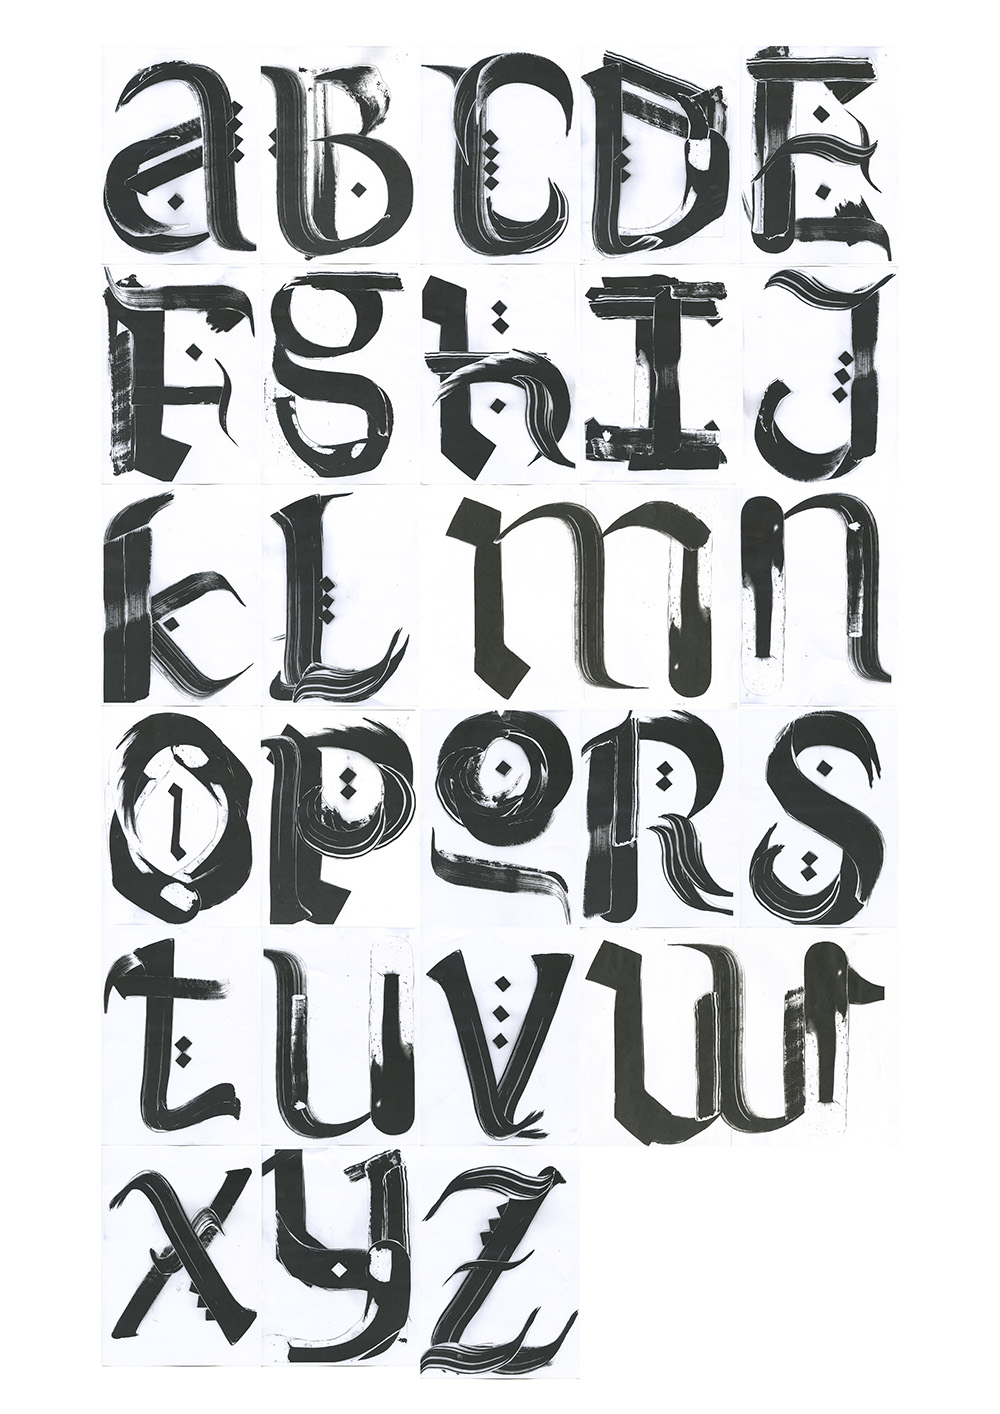 aBCDE
FghIJ
kLmn
OPqRS
tuvw
xyz